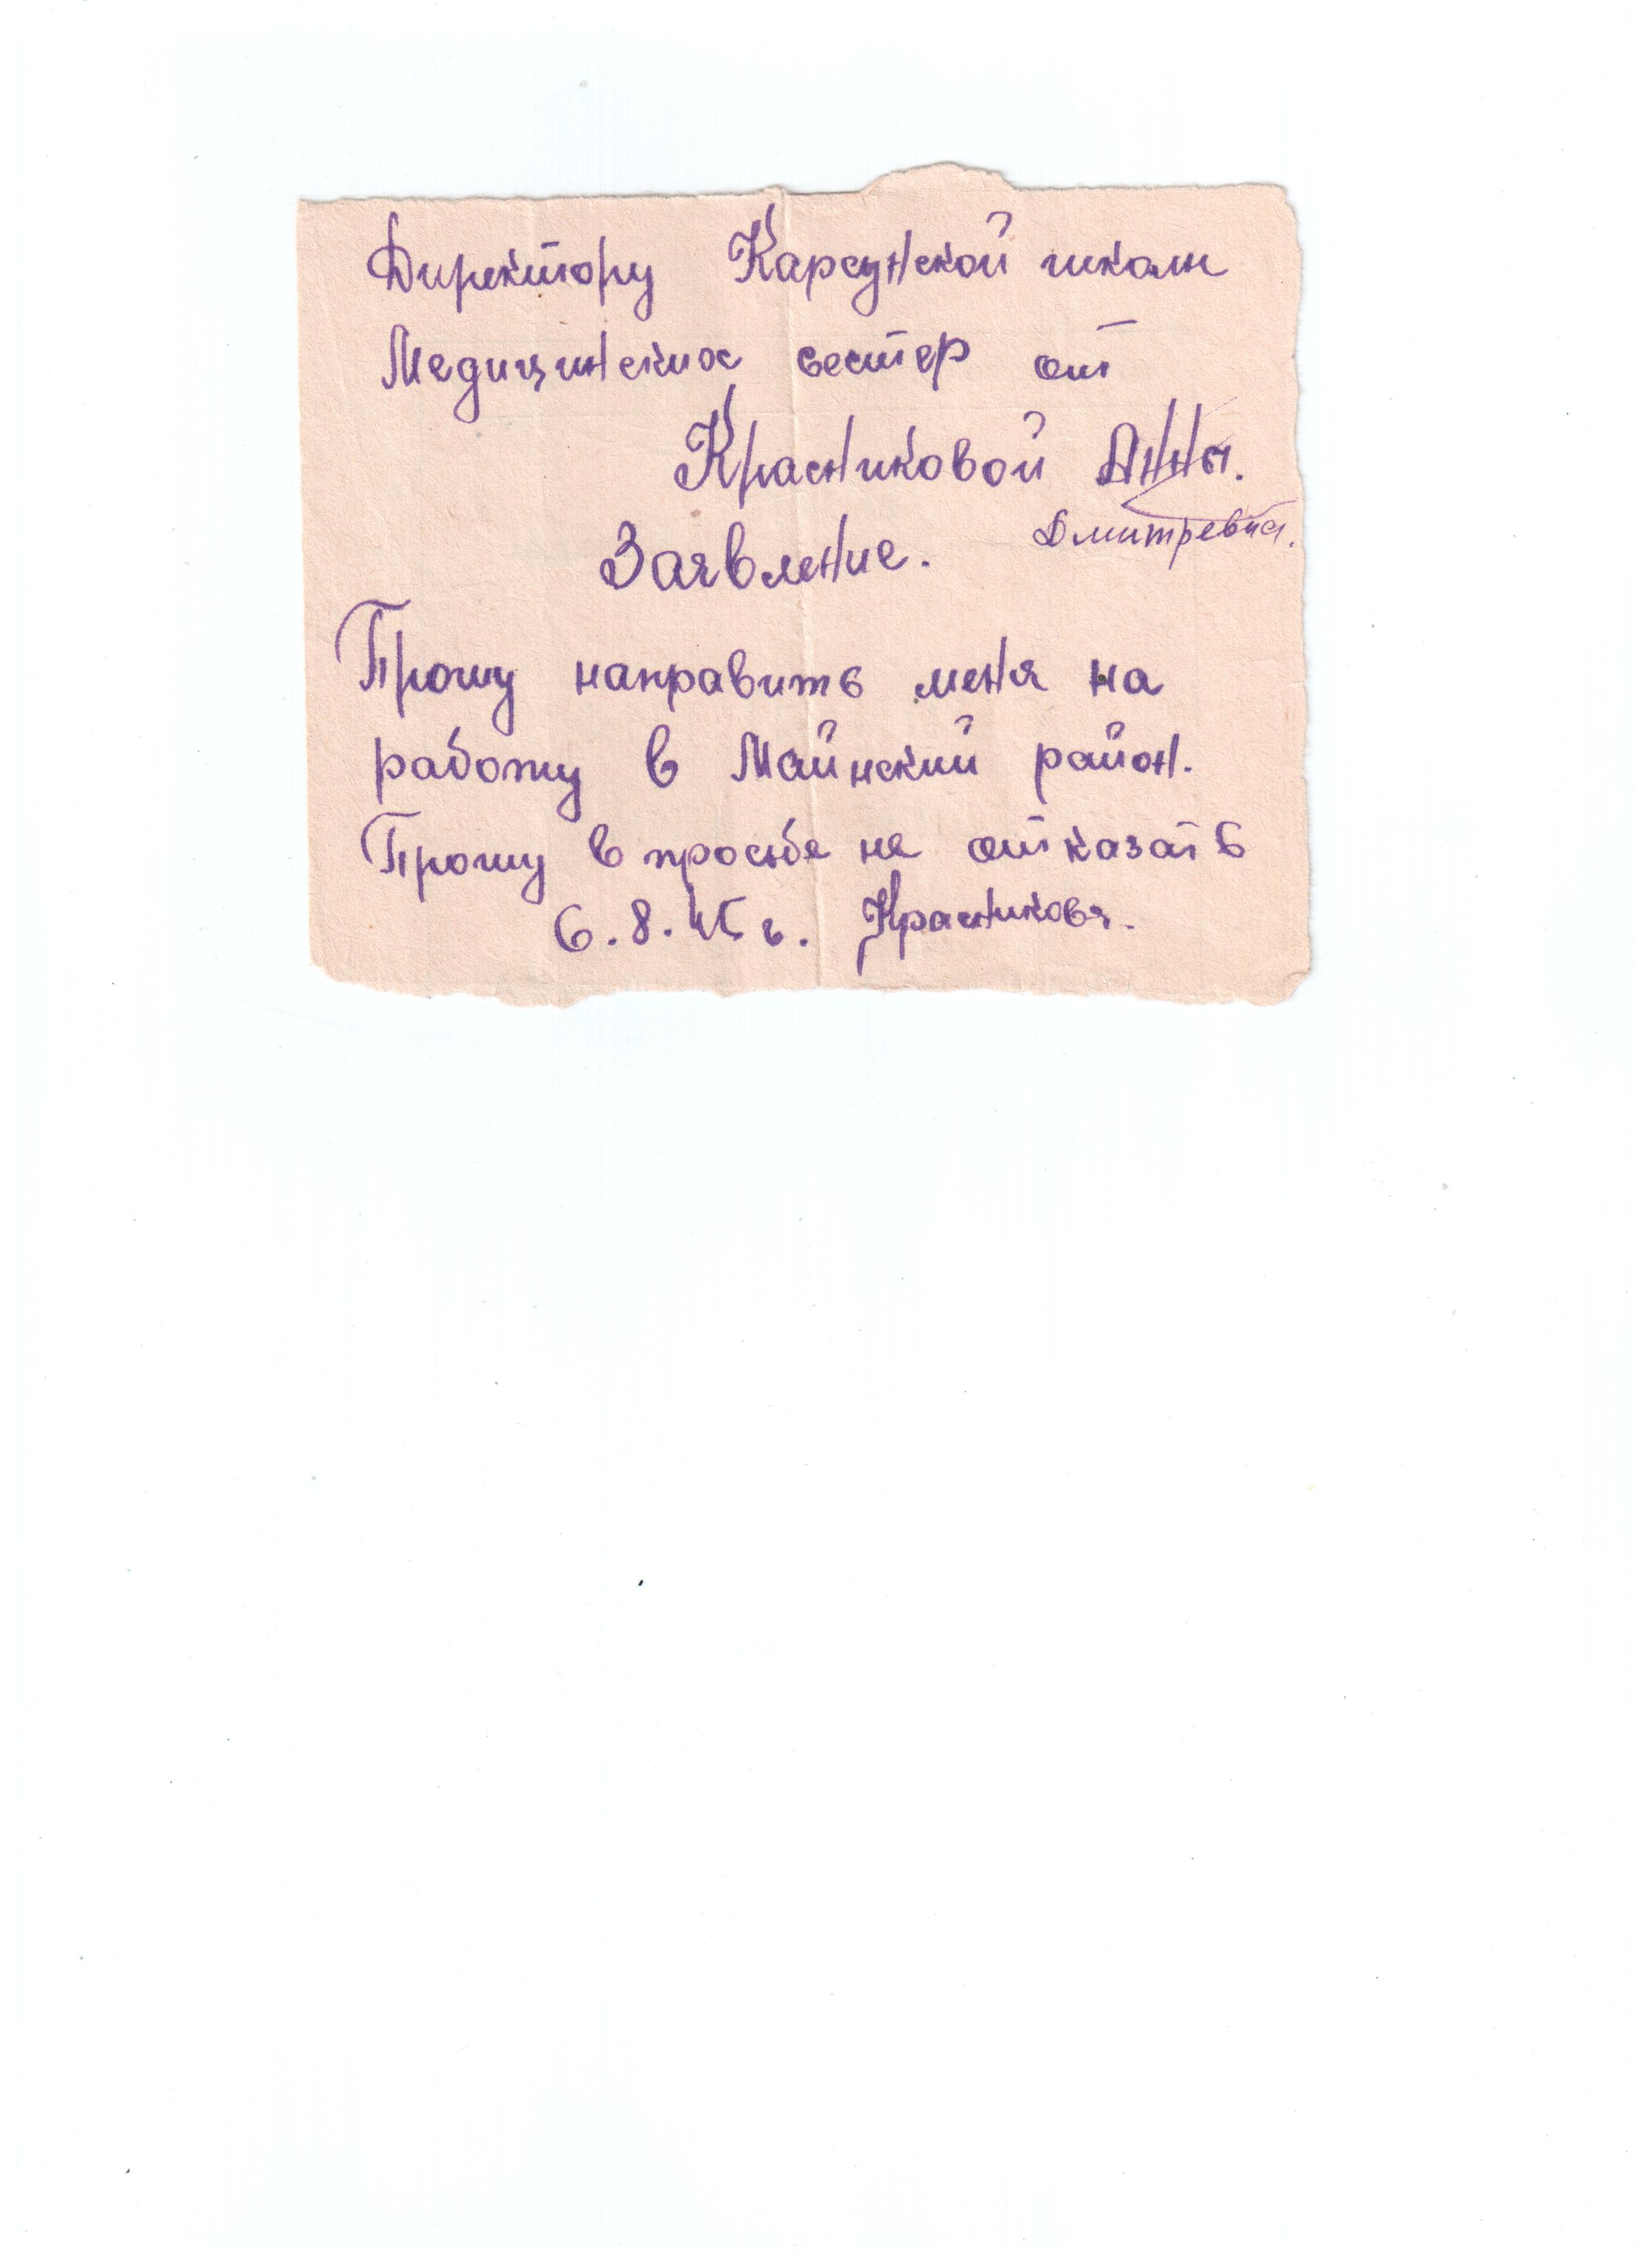 Директору Карсунской школы
Медицинских сестер от
Красниковой Анны.
Дмитревна.
Заявление.
Прошу направить меня на
работу в Майнский район.
Прошу в просьбе не отказать
6.8.45 г. Красникова.